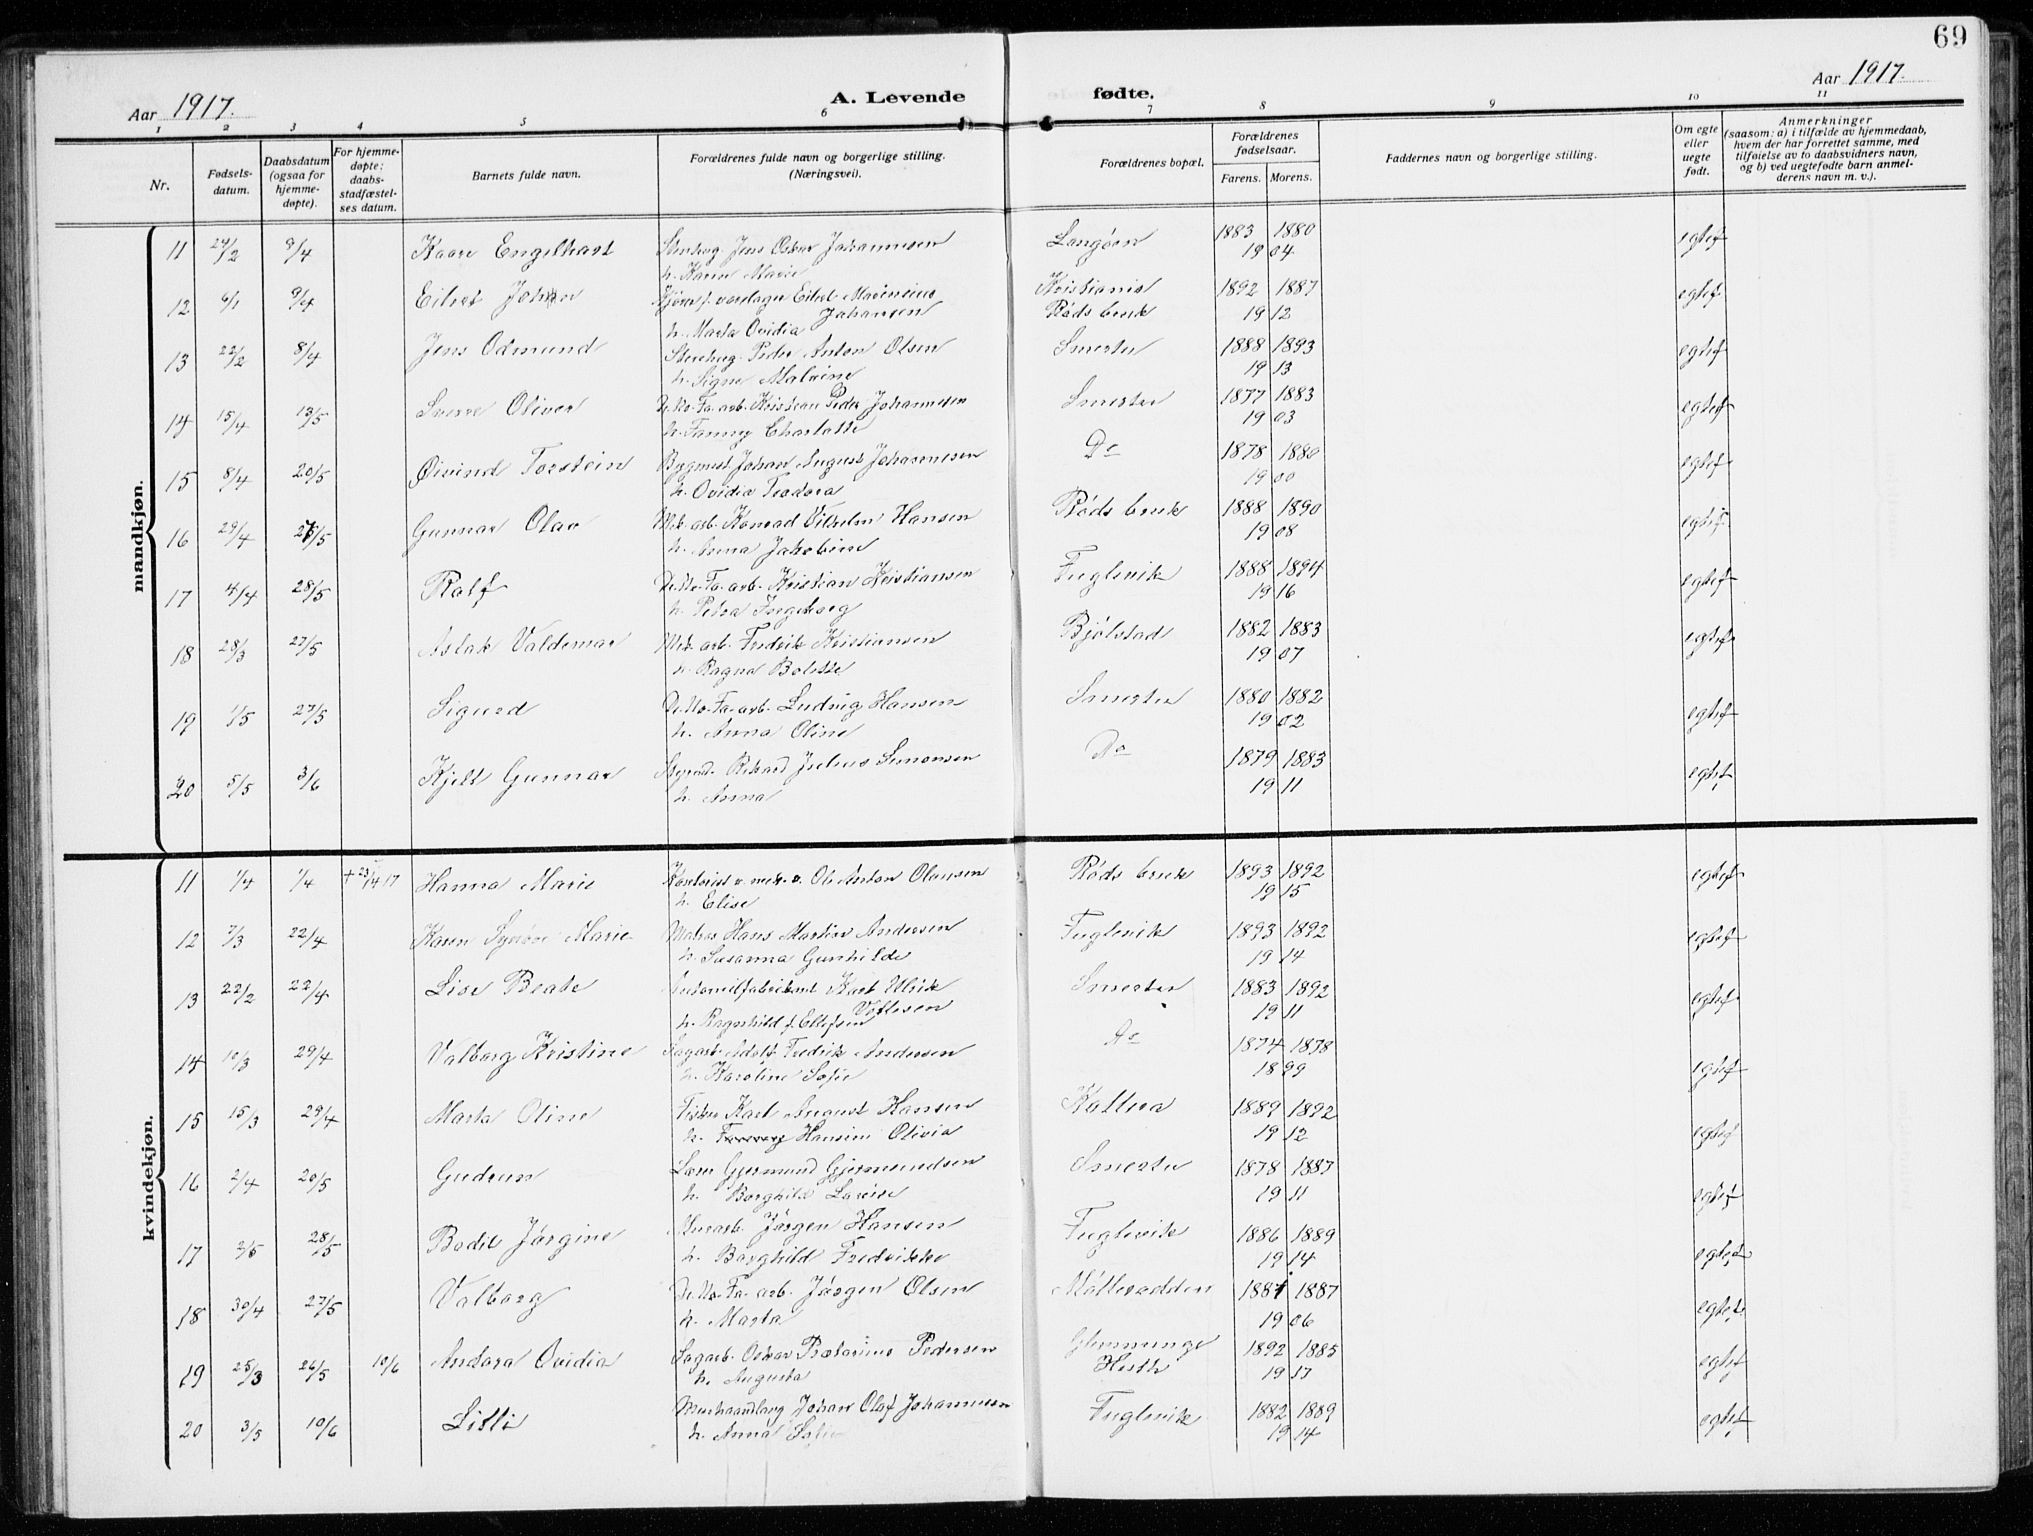 69
Aar 1917.
A. Levende fødte.
Aar 1917.
1 2 3 4 5 6 7 8 9 10 11
Nr.
Fødsels-
datum.
Daabsdatum
(ogsaa for
hjemme-
døpte).
For hjemme-
døpte:
daabs-
stadfæstel-
ses datum.
Barnets fulde navn.
Forældrenes fulde navn og borgerlige stilling.
(Næringsvei).
Forældrenes bopæl.
Forældrenes
fødselsaar.
Farens. Morens.
Faddernes navn og borgerlige stilling.
Om egte
eller
uegte
født.
Anmerkninger
(saasom: a) i tilfælde av hjemmedaab,
hvem der har forrettet samme, med
tilføielse av to daabsvidners navn,
og b) ved uegtefødte barn anmel-
derens navn m. v.).
mandkjøn.
11 24/2 9/4 Kaare Engelhart Stenhug. Jens Oskar Johannesen Langøen 1883 1880 egtef
h. Karen Marie 19 04
12 6/1 9/4 Eilert Johan Eilert Marensius Kristiania 1892 1887 egtef
Johansen Røds bruk 19 12
h. Marta Ovidia
13 22/2 8/4 Jens Odmund Stenhug. Peder Anton Olsen Smerter 1888 1893 egtef
h. Signe Malvine 19 13
14 15/4 13/5 Sverre Oliver De No-Fa. arb. Kristian Peder Johannesen Smerter 1877 1883 egtef
h. Fanny Charlotte 19 03
15 8/4 20/5 Øivind Torstein Bygmest. Johan August Johannesen Do 1878 1880 egtef
h. Ovidia Teodora 19 00
16 29/4 27/5 Gunnar Olav Mek. arb. Konrad Vilhelm Hansen Røds bruk 1888 1890 egtef
h. Anna Jakobine 19 08
17 4/4 28/5 Ralf De No-Fa. arb. Kristian Kristiansen Fuglevik 1888 1894 egtef
h. Petra Ingeborg 19 16
18 28/3 27/5 Aslak Valdemar Mek. arb. Fredrik Kristiansen Bjølstad 1882 1883 egtef
h. Ragna Bolette 19 07
19 1/5 27/5 Sigurd De No-Fa. arb. Ludvig Hansen Smerter 1880 1882 egtef
h. Anna Oline 19 02
20 5/5 3/6 Kjell Gunnar Rikard Julius Simonsen Do 1879 1883 egtef
h. Anna 19 11
kvindekjøn.
11 1/4 1/4 † 23/4 17 Hanna Marie Kontorist v. mek. v. Ole Anton Olausen Røds bruk 1893 1892 egtef
h. Elise 19 15
12 7/3 22/4 Karen Synøve Marie Matros Hans Martin Andersen Fuglevik 1893 1892 egtef
h. Susanna Gunhilde 19 14
13 22/2 22/4 Lise Beate Karl Ulrik Smerter 1883 1892 egtef
Vettesen
h. Ragnhild f. Ellefsen 19 11
14 10/3 29/4 Valborg Kristine Sagarb. Adolf Fredrik Andersen Do 1874 1878 egtef
h. Karoline Sofie 18 99
15 15/3 29/4 Marta Oline Fisker Karl August Hansen Kallera 1889 1892 egtef
h. Hansine Olivia 19 12
16 2/4 20/5 Gudrun Lærer Gjermund Gjermundsen Smerter 1878 1887 egtef
h. Borghild Lovise 19 11
17 3/5 28/5 Bodil Jørgine Murarb. Jørgen Hansen Fuglevik 1886 1889 egtef
h. Borghild Fredrikke 19 14
18 30/4 27/5 Valborg De No-Fa. arb. Jørgen Olsen Mølleradden 1881 1887 egtef
h. Marta 19 06
19 25/3 26/5 10/6 Andora Ovidia Sagarb. Oskar Pedersen Glemminge 1892 1885 egtef
h. Augusta 19 17
20 3/5 10/6 Lilli Johan Olaf Johannesen Fuglevik 1882 1889 egtef
h. Anna Sofie 19 14